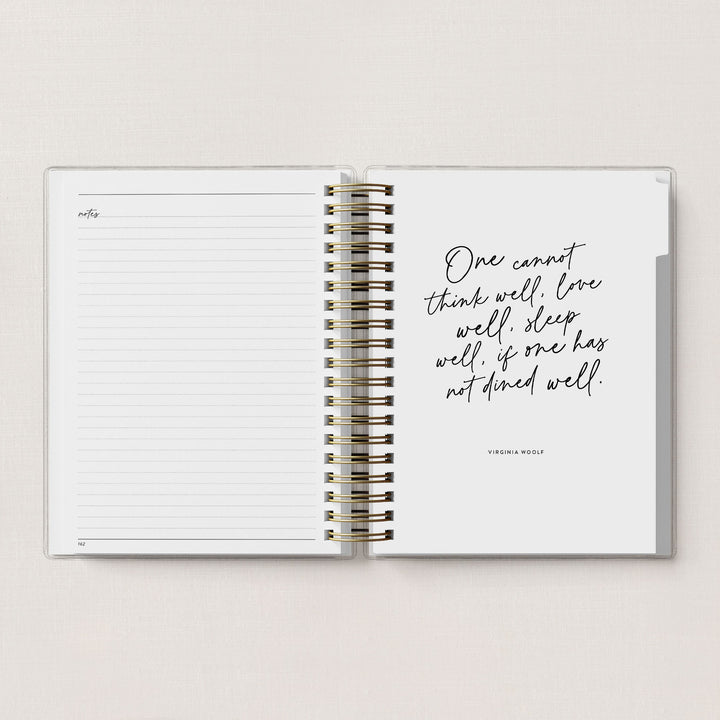 notes
162
One cannot
think well, love
well, sleep
well, if one has
not dined well.
VIRGINIA WOOLF